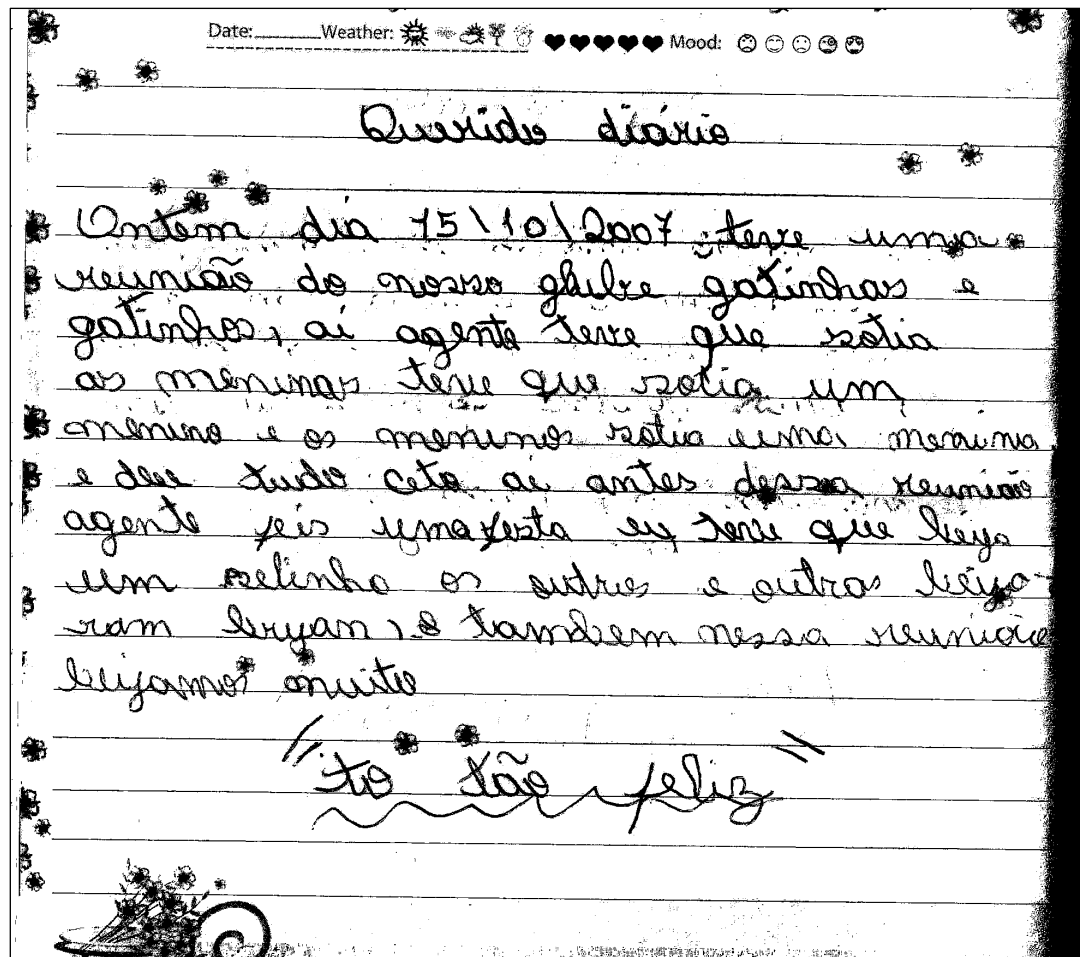 Date: Weather: Mood:
Querido diário
Ontem dia 15\10\2007 teve uma
reunião do nosso glube gatinhas e
gatinhos, ai agente teve que sotia
as meninas teve que sotia um
menino e os meninos sotia uma menina
e deu tudo ceto ai antes dessa reunião
agente feis uma festa eu teve que beija
um selinho os outros e outras beija-
ram bryan, e tambem nessa reunião
beijamos muito
"to tão feliz"